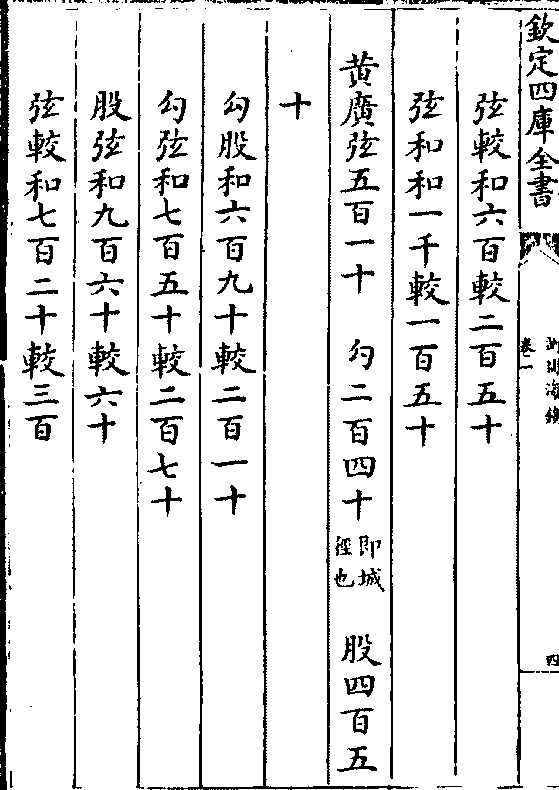 欽定四庫全書
測圓海鏡
卷一
四
弦較和六百較二百五十
弦和和一千較一百五十
黃廣弦五百一十 勾二百四十即城徑也 股四百五
十
勾股和六百九十較二百一十
勾弦和七百五十較二百七十
股弦和九百六十較六十
弦較和七百二十較三百